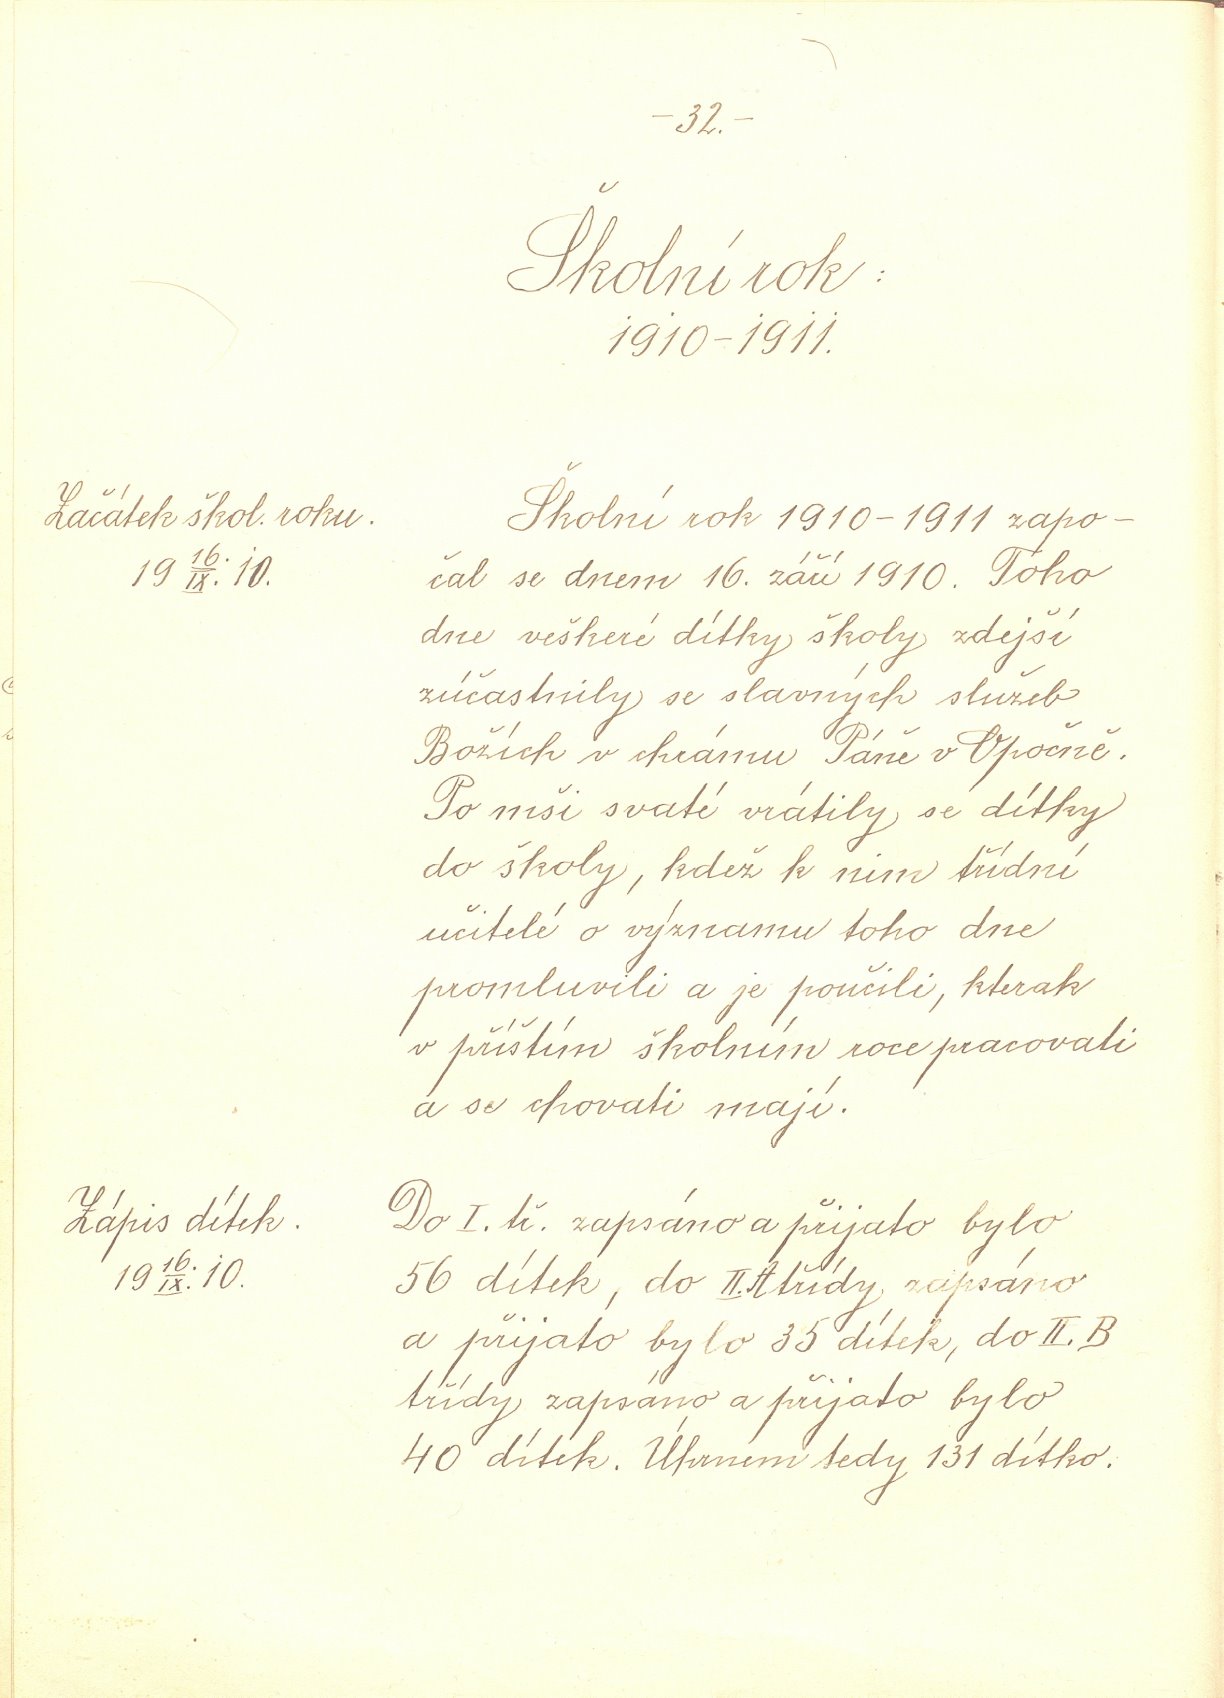 – 32. –
Školní rok :
1910 – 1911.
Začátek škol. roku.
19 16./IX. 10.
Školní rok 1910 – 1911 zapo –
čal se dnem 16. září 1910. Toho
dne veškeré dítky školy zdejší
zúčastnily se slavných služeb
Božích v chrámu Páně v Opočně.
Po mši svaté vrátily se dítky
do školy, kdež k nim třídní
učitelé o významu toho dne
promluvili a je poučili, kterak
v příštím školním roce pracovati
a se chovati mají.
Zápis dítek.
19 16./IX. 10.
Do I. tř. zapsáno a přijato bylo
56 dítek, do II. A třídy zapsáno
a přijato bylo 35 dítek, do II. B
třídy zapsáno a přijato bylo
40 dítek. Úhrnem tedy 131 dítko.